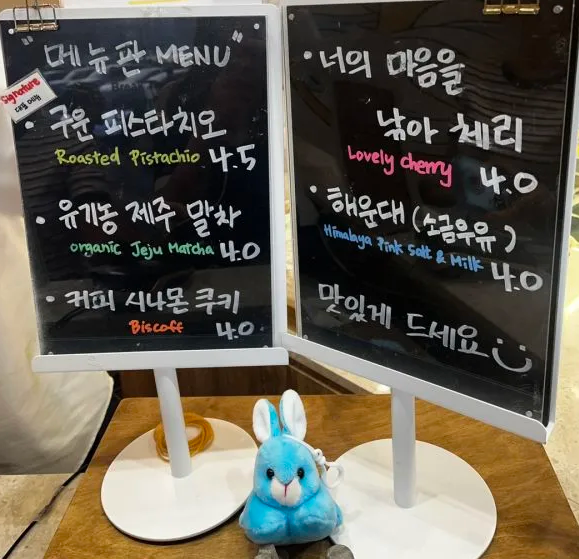 "메뉴판 MENU"
Signature
대표메뉴
• 구운 피스타치오
Roasted Pistachio 4.5
• 유기농 제주 말차
organic Jeju Matcha 4.0
• 커피 시나몬 쿠키
Biscoff 4.0
• 너의 마음을
낚아 체리
Lovely cherry 4.0
• 해운대 (소금우유)
Himalaya Pink Salt & Milk 4.0
맛있게 드세요